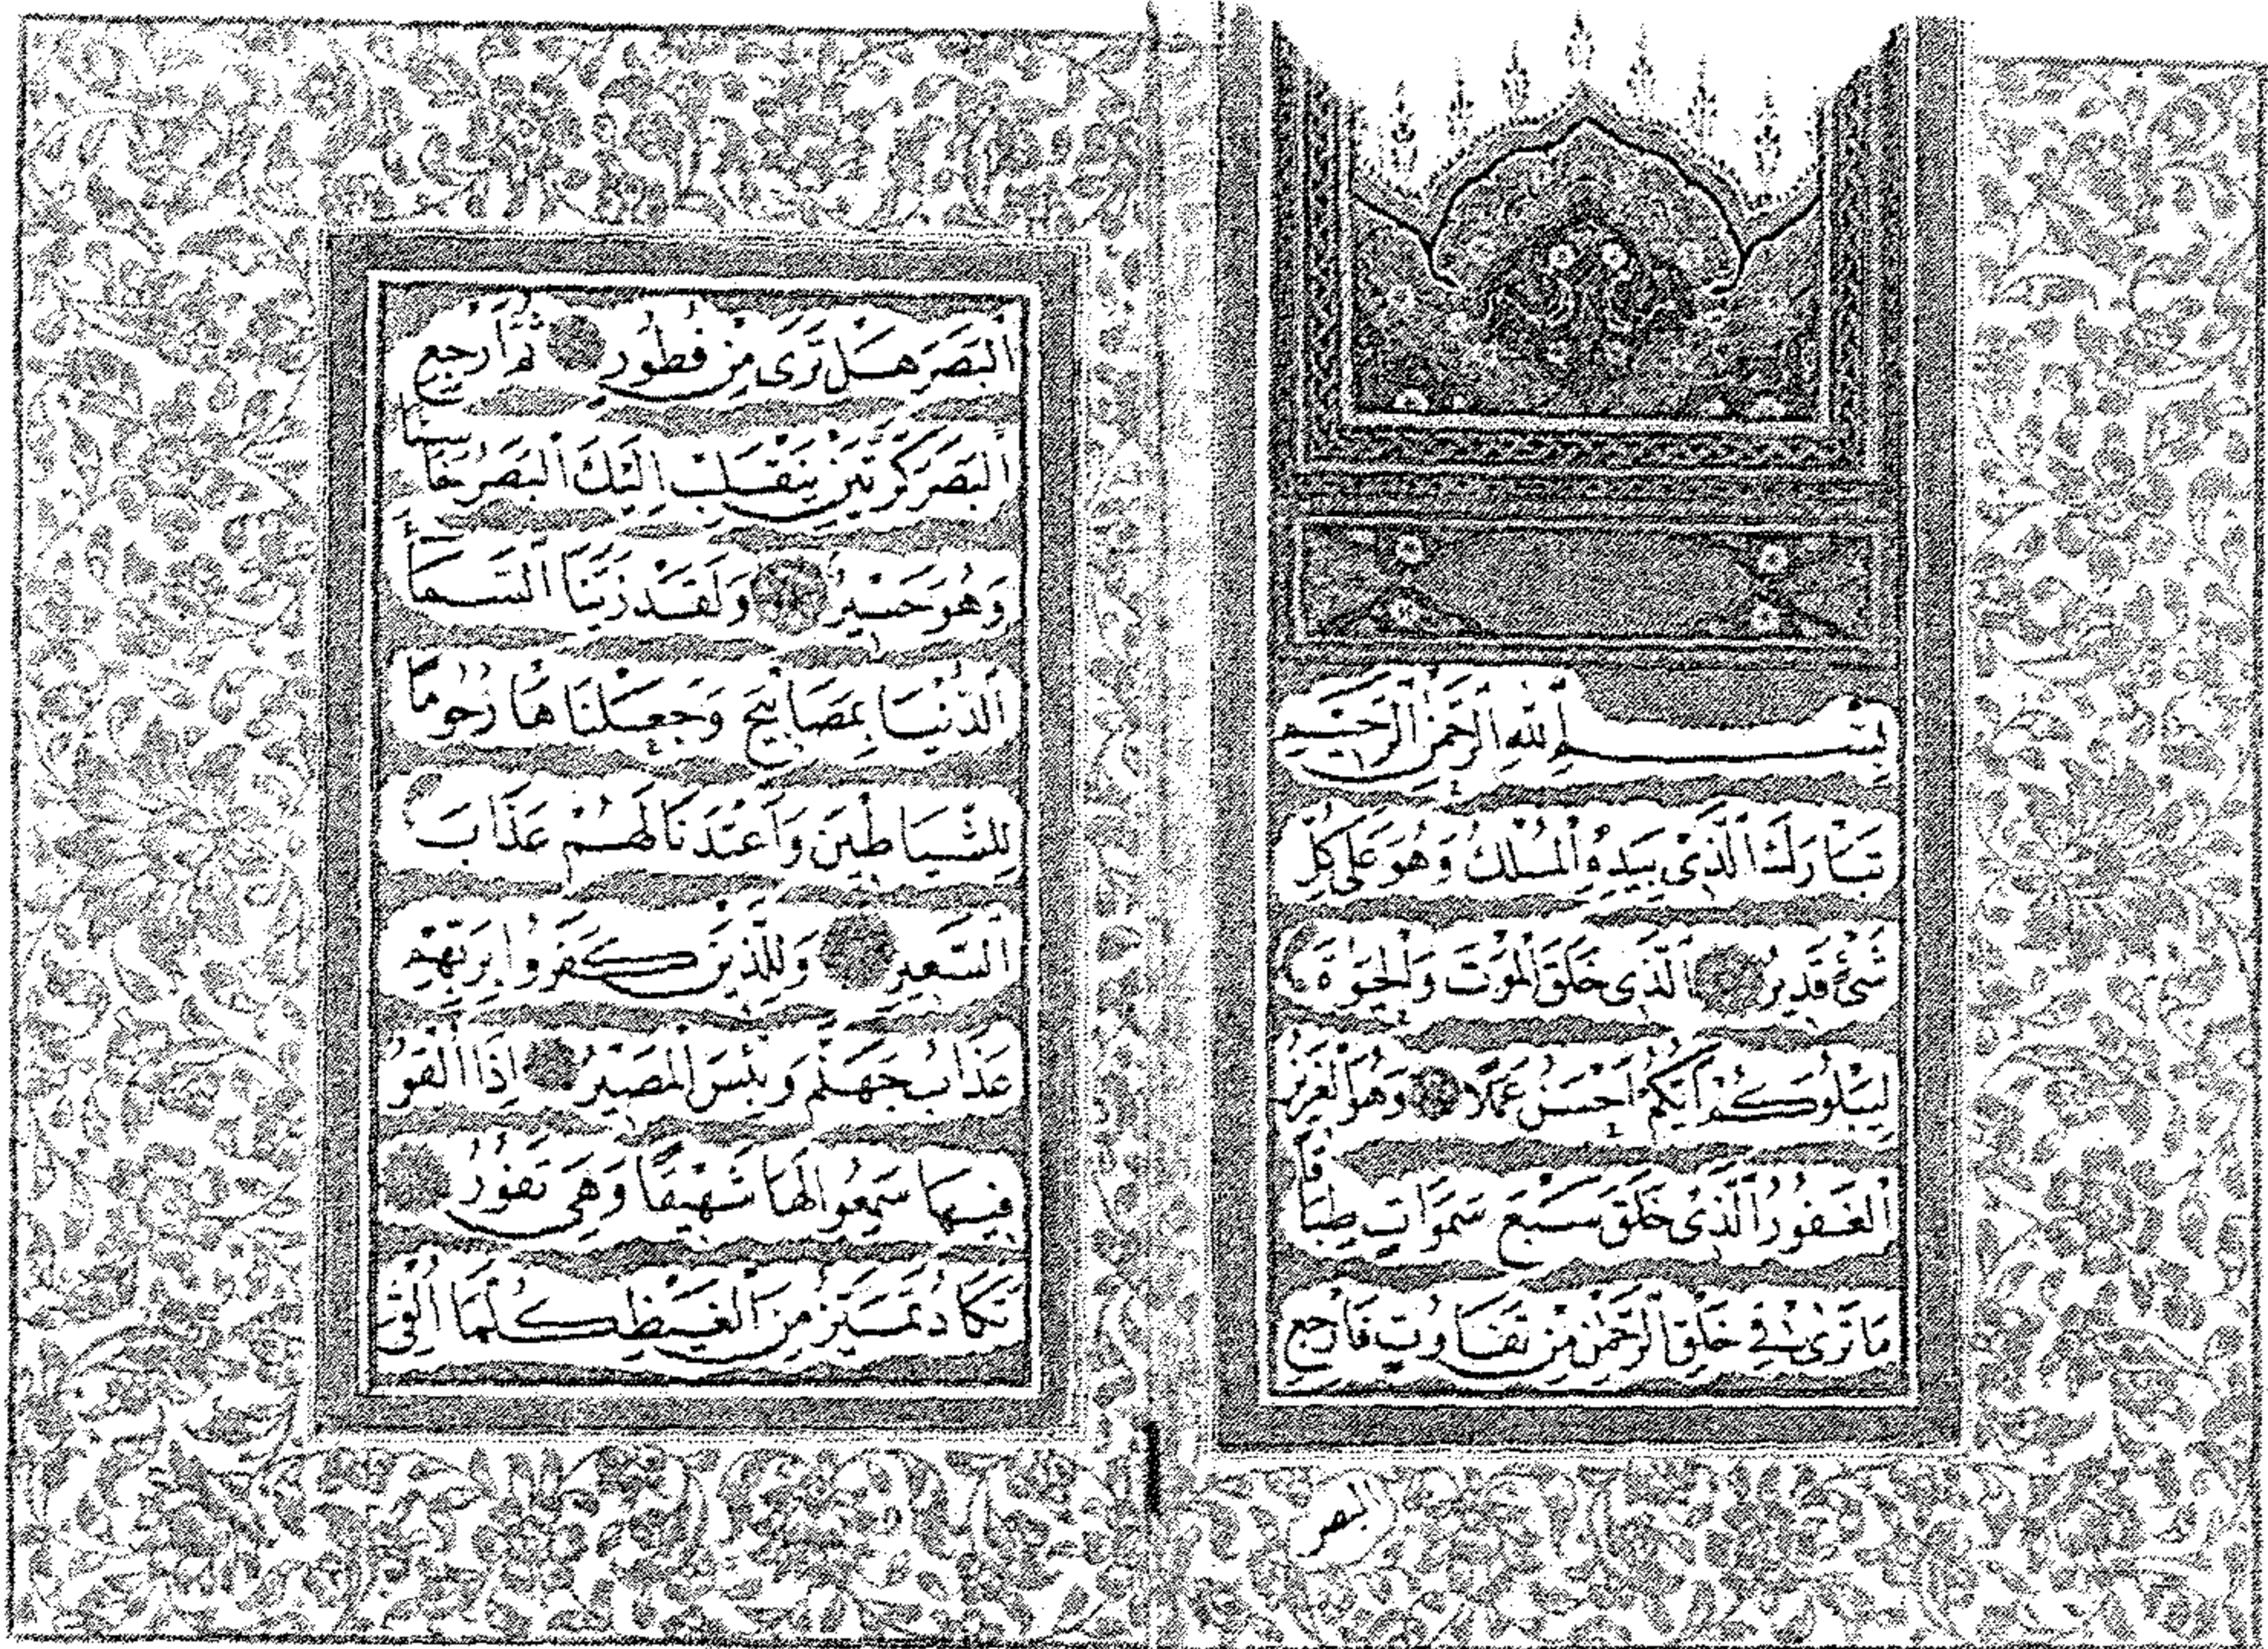 بِسْمِ اللّٰهِ الرَّحْمٰنِ الرَّحِيمِ
تَبَارَكَ الَّذِى بِيَدِهِ الْمُلْكُ وَهُوَ عَلٰى كُلِّ
شَىْءٍ قَدِيرٌ اَلَّذِى خَلَقَ الْمَوْتَ وَالْحَيٰوةَ
لِيَبْلُوَكُمْ اَيُّكُمْ اَحْسَنُ عَمَلًا وَهُوَ الْعَزِيزُ
الْغَفُورُ الَّذِى خَلَقَ سَبْعَ سَمٰوَاتٍ طِبَاقًا
مَا تَرٰى فِى خَلْقِ الرَّحْمٰنِ مِنْ تَفَاوُتٍ فَارْجِعِ
البصر
الْبَصَرَ هَلْ تَرٰى مِنْ فُطُورٍ ثُمَّ ارْجِعِ
الْبَصَرَ كَرَّتَيْنِ يَنْقَلِبْ اِلَيْكَ الْبَصَرُ خَاسِئًا
وَهُوَ حَسِيرٌ وَلَقَدْ زَيَّنَّا السَّمَاءَ
الدُّنْيَا بِمَصَابِيحَ وَجَعَلْنَاهَا رُجُومًا
لِلشَّيَاطِينِ وَاَعْتَدْنَا لَهُمْ عَذَابَ
السَّعِيرِ وَلِلَّذِينَ كَفَرُوا بِرَبِّهِمْ
عَذَابُ جَهَنَّمَ وَبِئْسَ الْمَصِيرُ اِذَا اُلْقُوا
فِيهَا سَمِعُوا لَهَا شَهِيقًا وَهِىَ تَفُورُ
تَكَادُ تَمَيَّزُ مِنَ الْغَيْظِ كُلَّمَا اُلْقِىَ